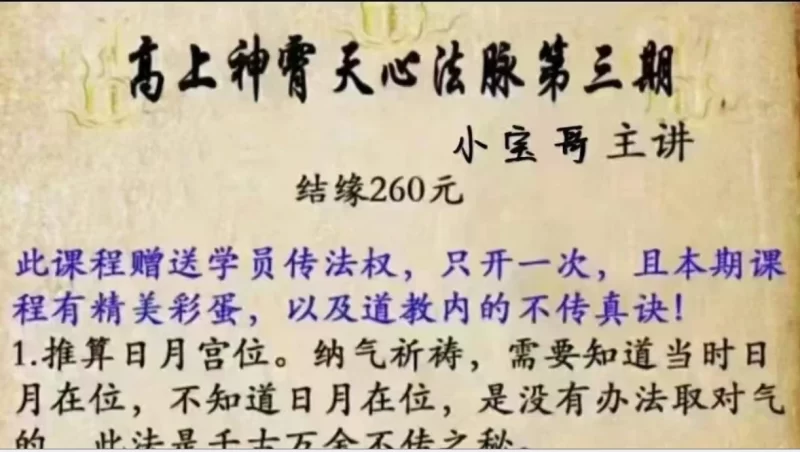 高上神霄天心法脉第三期
小宝哥主讲
结缘260元
此课程赠送学员传法权，只开一次，且本期课
程有精美彩蛋，以及道教内的不传真诀！
1.推算日月宫位。纳气祈祷，需要知道当时日
月在位，不知道日月在位，是没有办法取对气
的，此法是千古万金不传之秘。